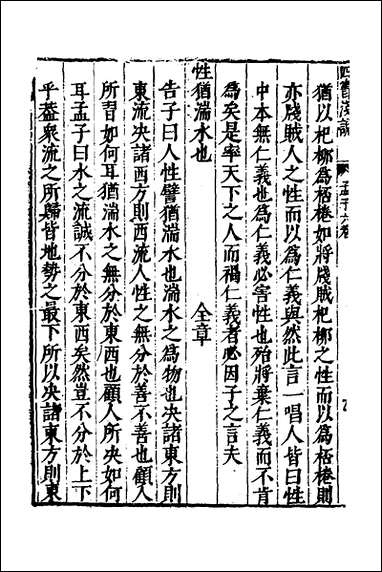 四書淺說 孟子六卷
猶以杞柳爲桮棬如將戕賊杞柳之性而以爲桮棬則
亦戕賊人之性而以爲仁義與然此言一唱人皆曰性
中本無仁義也爲仁義必害性也殆將棄仁義而不肯
爲矣是率天下之人而禍仁義者必因子之言夫
性猶湍水也 全章
告子曰人性譬猶湍水也湍水之爲物也决諸東方則
東流决諸西方則西流人性之無分於善不善也顧人
所習如何耳猶湍水之無分於東西也顧人所决如何
耳孟子曰水之流誠不分於東西矣然豈不分於上下
乎蓋衆流之所歸皆地勢之最下所以决諸東方則東